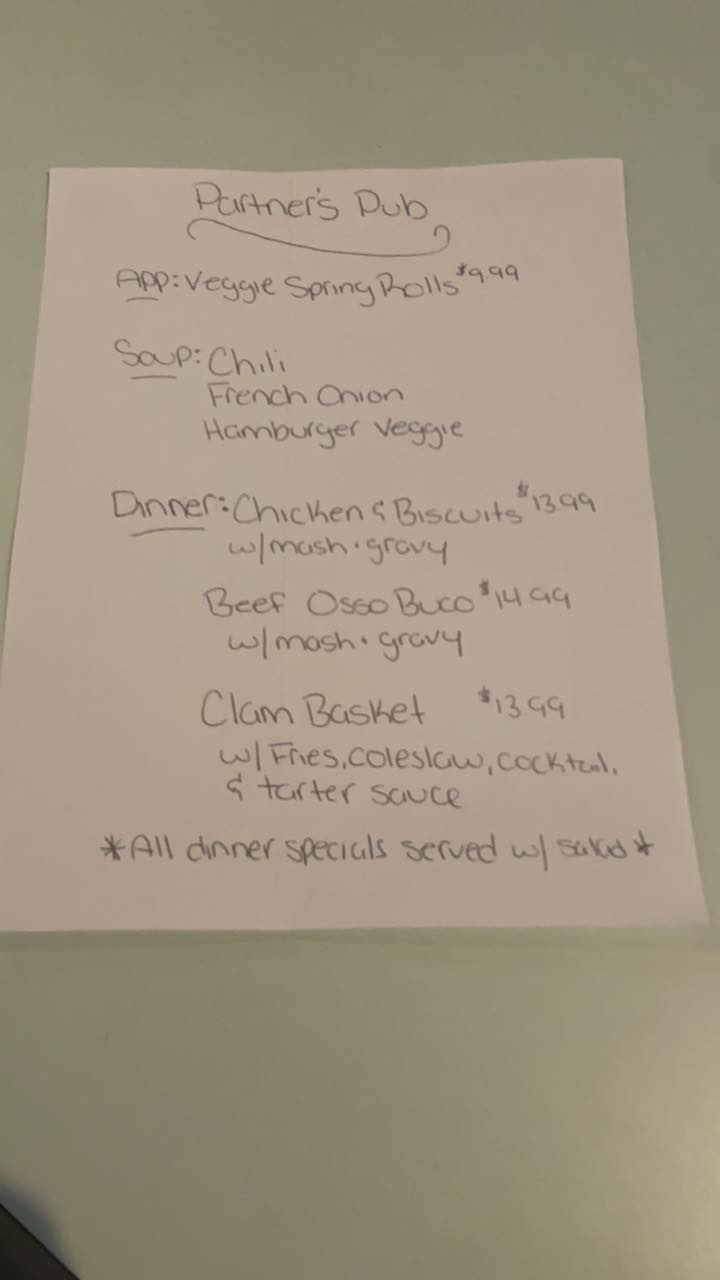 Partner's Pub
App: Veggie Spring Rolls $9.99
Soup: Chili
French Onion
Hamburger Veggie
Dinner: Chicken & Biscuits $13.99
w/mash + gravy
Beef Osso Buco $14.99
w/mash + gravy
Clam Basket $13.99
w/ Fries, coleslaw, cocktail,
& tarter sauce
*All dinner specials served w/ salad*